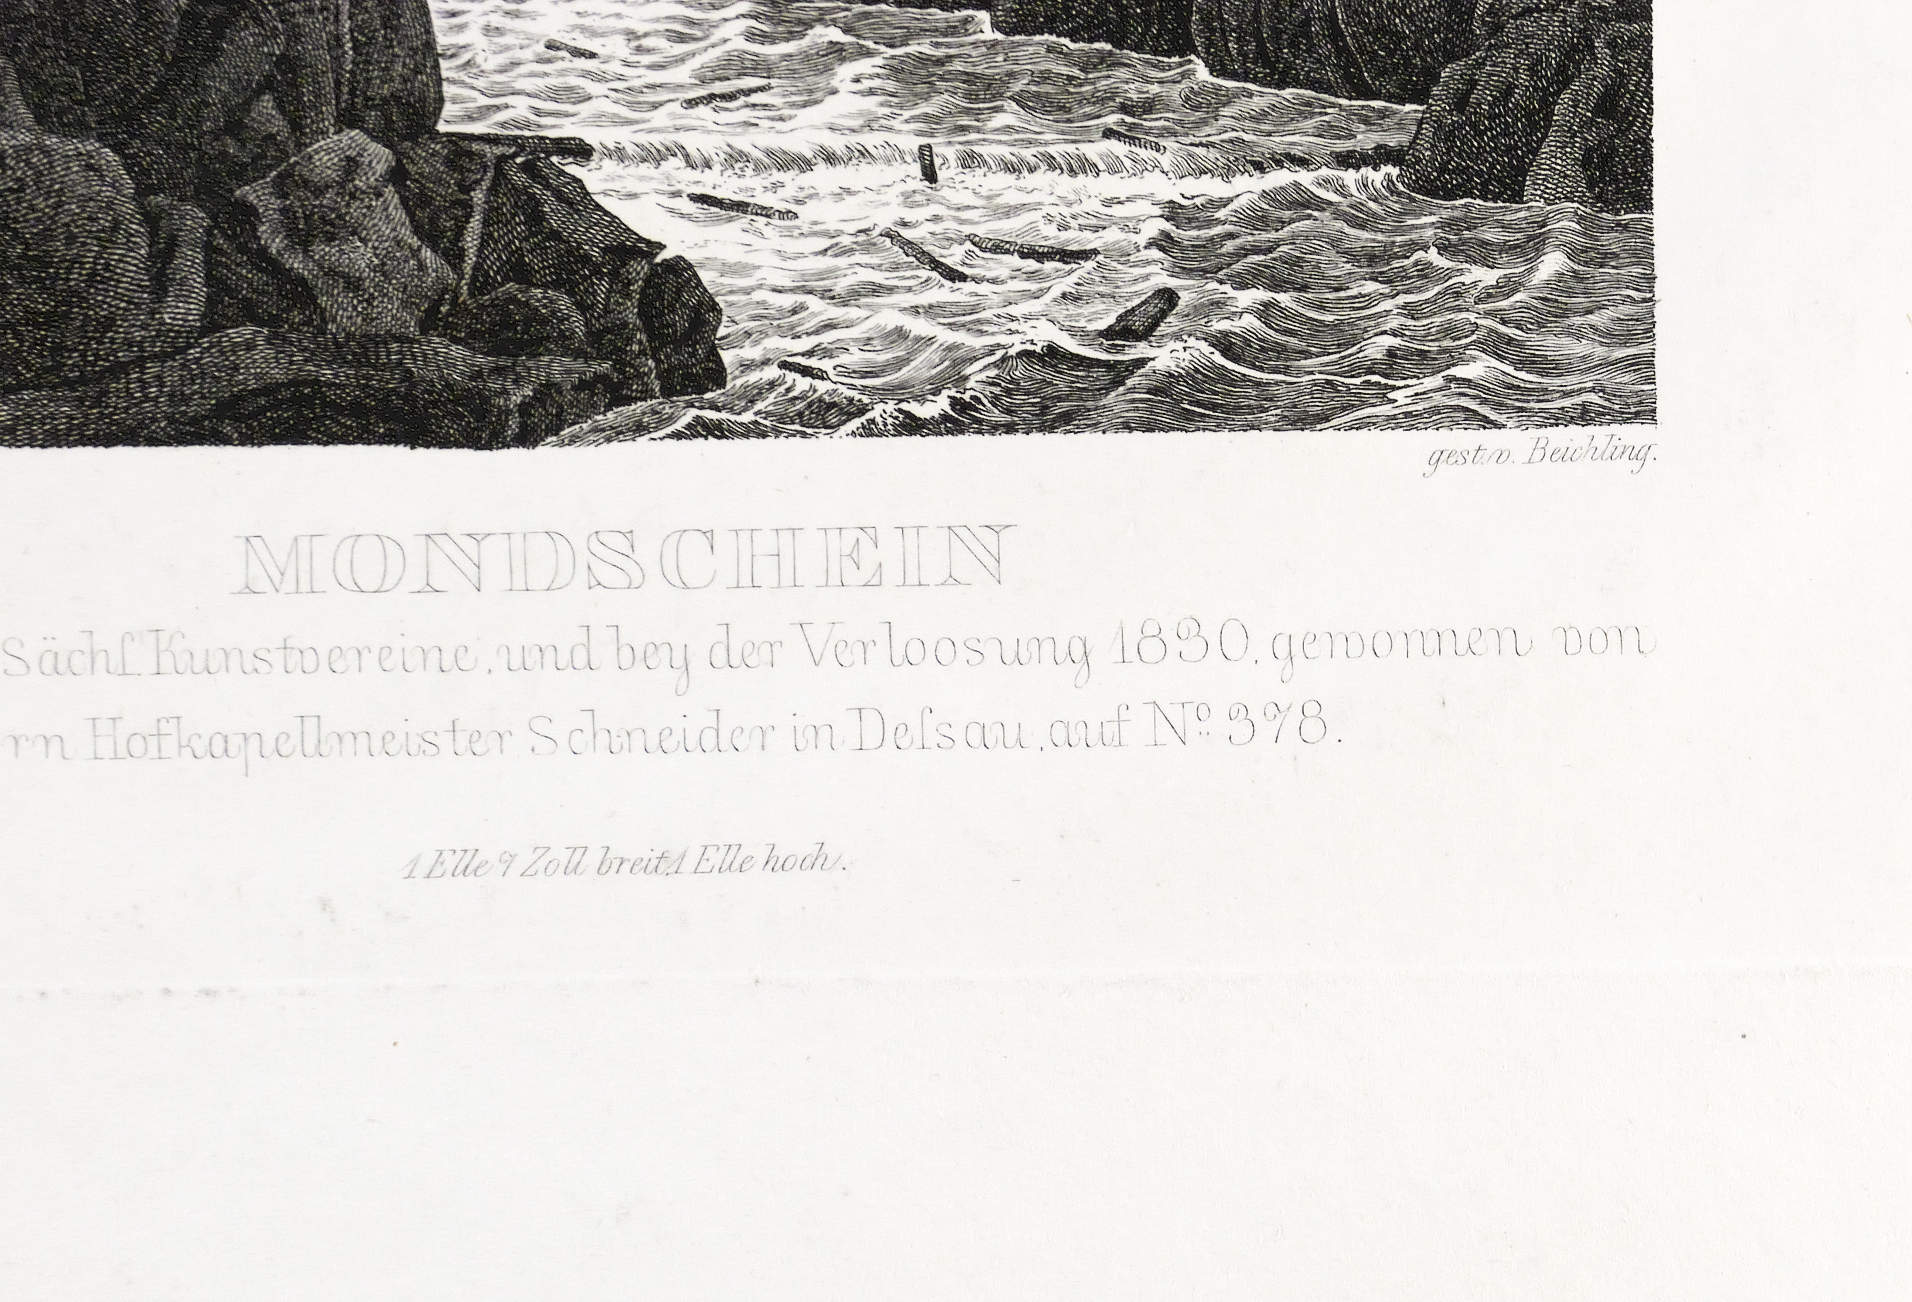 gest. v. Beichling.
MONDSCHEIN
Sächſ. Kunstvereine, und bey der Verloosung 1830, gewonnen von
rn Hofkapellmeister Schneider in Deſsau, auf No. 378.
1 Elle 7 Zoll breit, 1 Elle hoch.